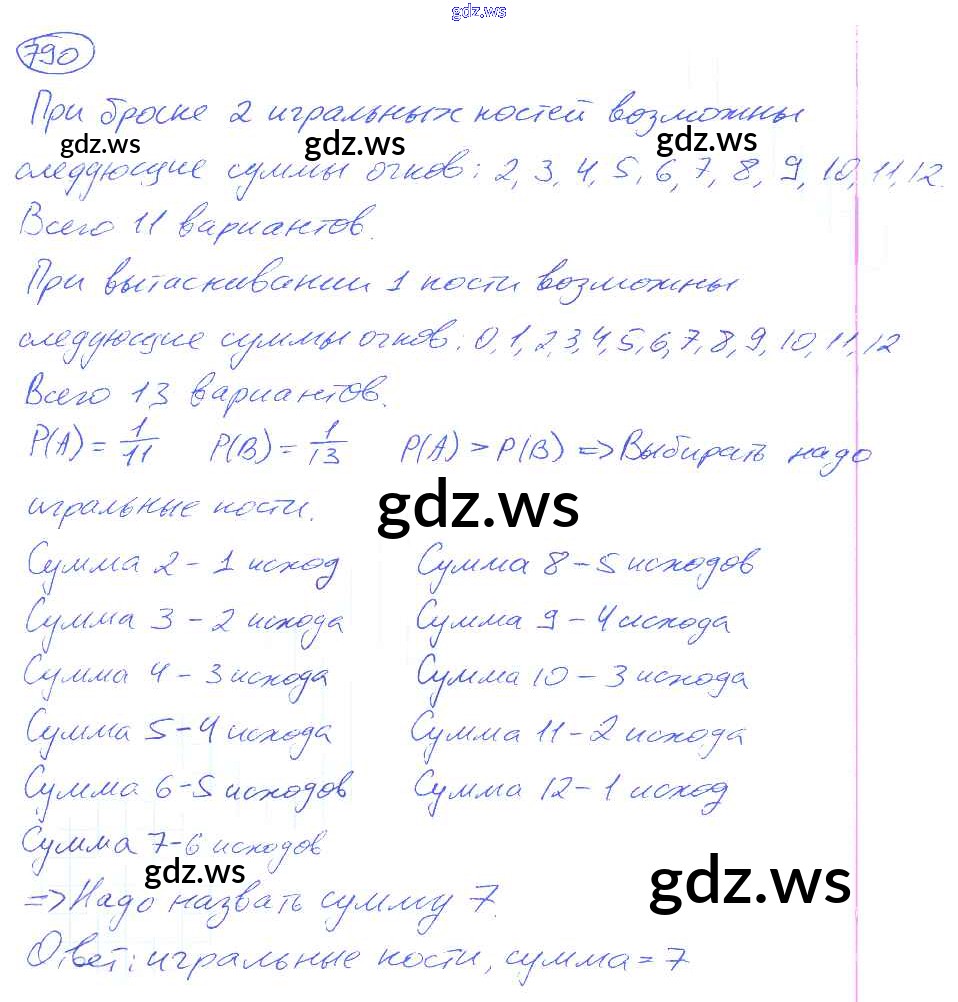 gdz.ws
790
При броске 2 игральных костей возможны
gdz.ws gdz.ws gdz.ws
следующие суммы очков: 2, 3, 4, 5, 6, 7, 8, 9, 10, 11, 12.
Всего 11 вариантов.
При вытаскивании 1 кости возможны
следующие суммы очков: 0, 1, 2, 3, 4, 5, 6, 7, 8, 9, 10, 11, 12
Всего 13 вариантов.
P(A) = 1/11 P(B) = 1/13 P(A) > P(B) => Выбирать надо
игральные кости.
gdz.ws
Сумма 2 – 1 исход Сумма 8 – 5 исходов
Сумма 3 – 2 исхода Сумма 9 – 4 исхода
Сумма 4 – 3 исхода Сумма 10 – 3 исхода
Сумма 5 – 4 исхода Сумма 11 – 2 исхода
Сумма 6 – 5 исходов Сумма 12 – 1 исход
Сумма 7 – 6 исходов
gdz.ws gdz.ws
=> Надо назвать сумму 7.
Ответ: игральные кости, сумма = 7